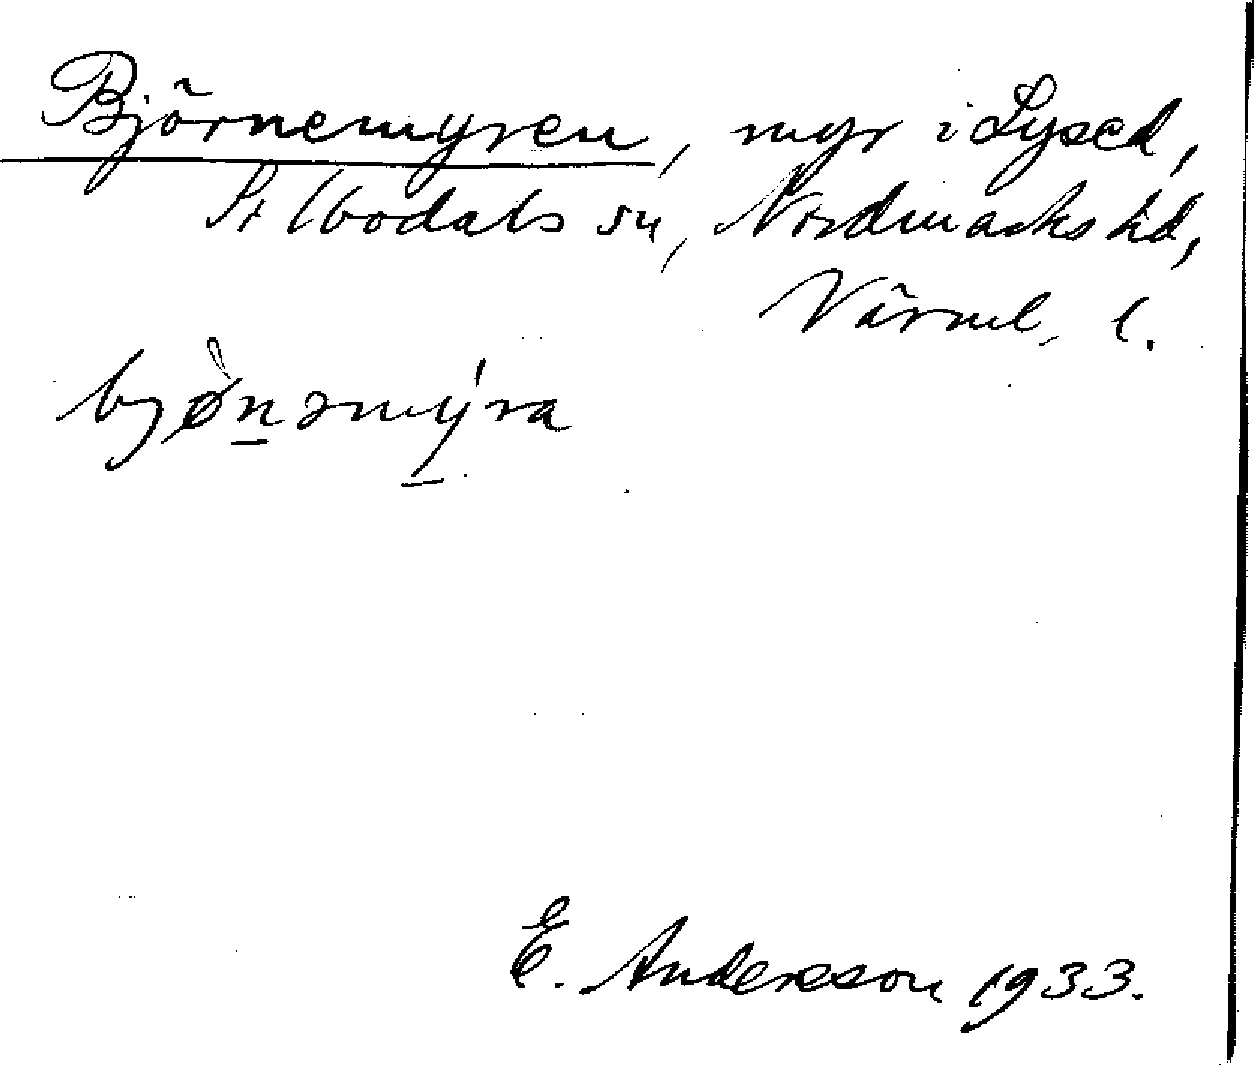 Björnemyren, myr i Lysed,
St Bodals sn, Nordmarks hd,
Värml. l.
bjø̀nəmýra
E. Andersson 1933.